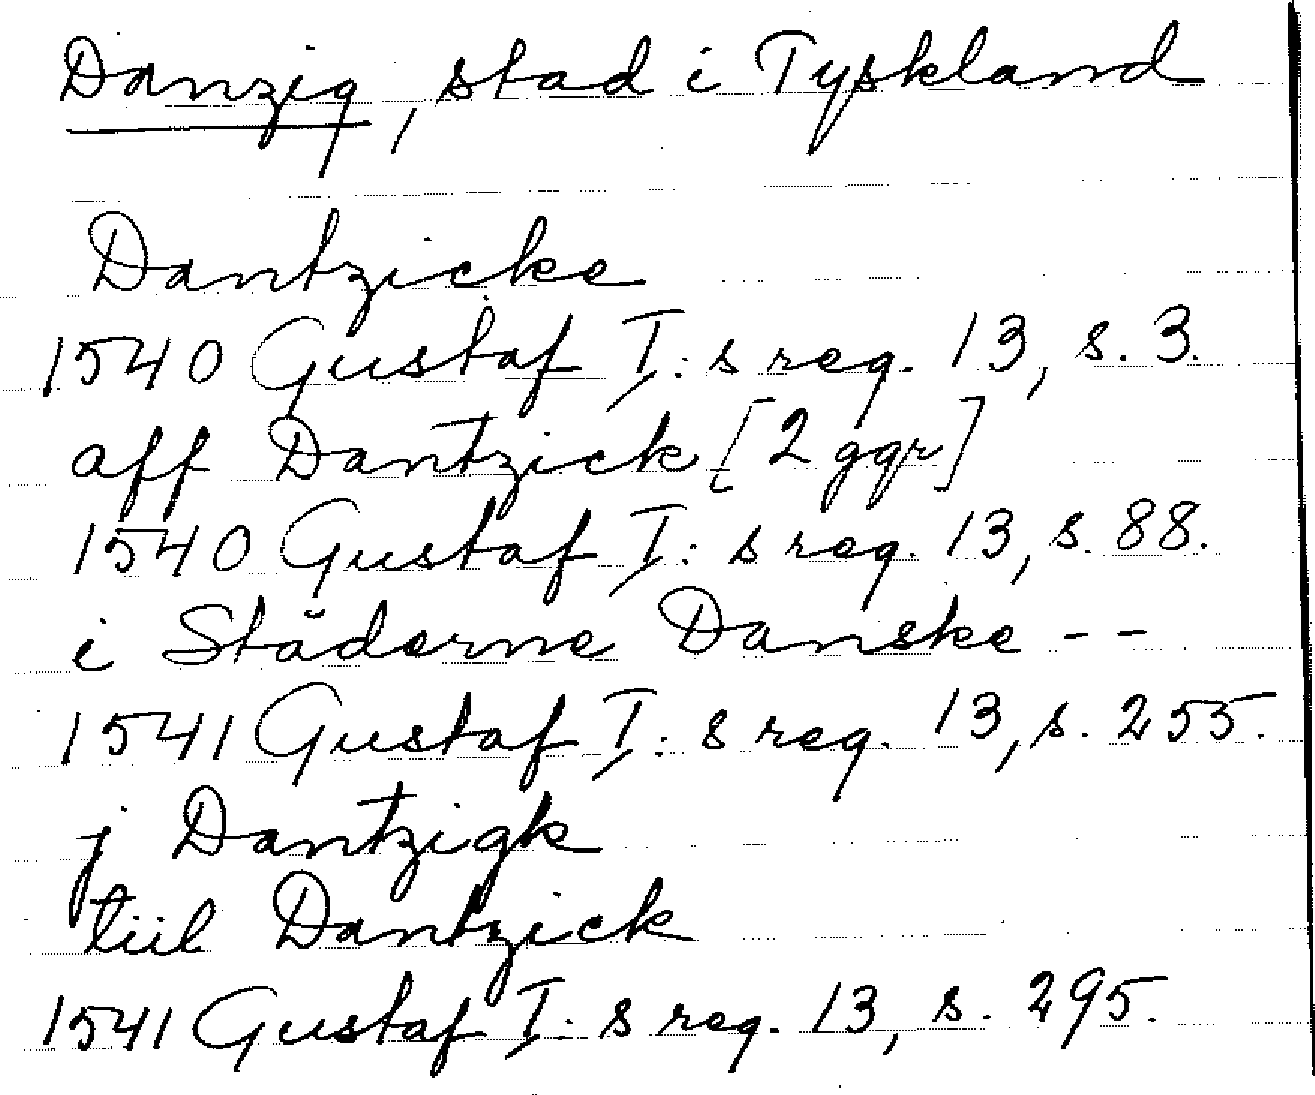 Danzig, stad i Tyskland
Dantzicke
1540 Gustaf I:s reg. 13, s. 3.
aff Dantzick [2 ggr]
1540 Gustaf I:s reg. 13, s. 88.
i Städerne Danske --
1541 Gustaf I:s reg. 13, s. 255.
j Dantzigk
tiil Dantzick
1541 Gustaf I:s reg. 13, s. 295.